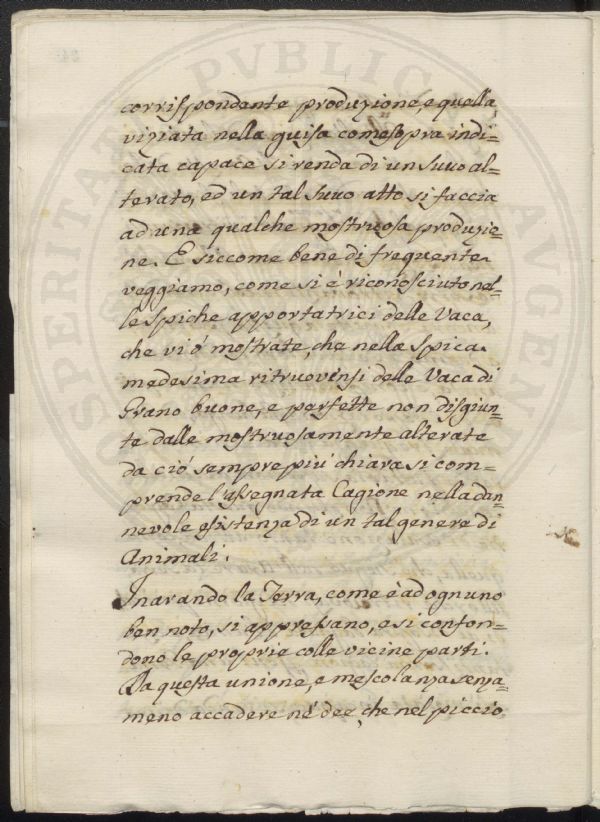 corrispondante produzione, e quella
viziata nella guisa comesopra indi=
cata capace si renda di un suuo al=
terato, ed un tal suuo atto si faccia
ad una qualche mostruosa produzio=
ne. E siccome bene di frequente
veggiamo, come si è riconosciuto nel=
le spiche apportatrici delle Vaca,
che vi ó mostrate, che nella spica
medesima ritruovinsi delle Vaca di
Grano buone, e perfette non disgiun=
te dalle mostruosamente alterate
da ció sempre piú chiara si com=
prende l'assegnata Cagione nella dan=
nevole esistenza di un tal genere di
Animali.
Inarando la Terra, come è ad ognuno
ben noto, si appressano, e si confon=
dono le proprie colle vicine parti.
Da questa unione, e mescolanza senza=
meno accadere né dee, che nel piccio
PVBLICA
AVGEN
OSPERITA